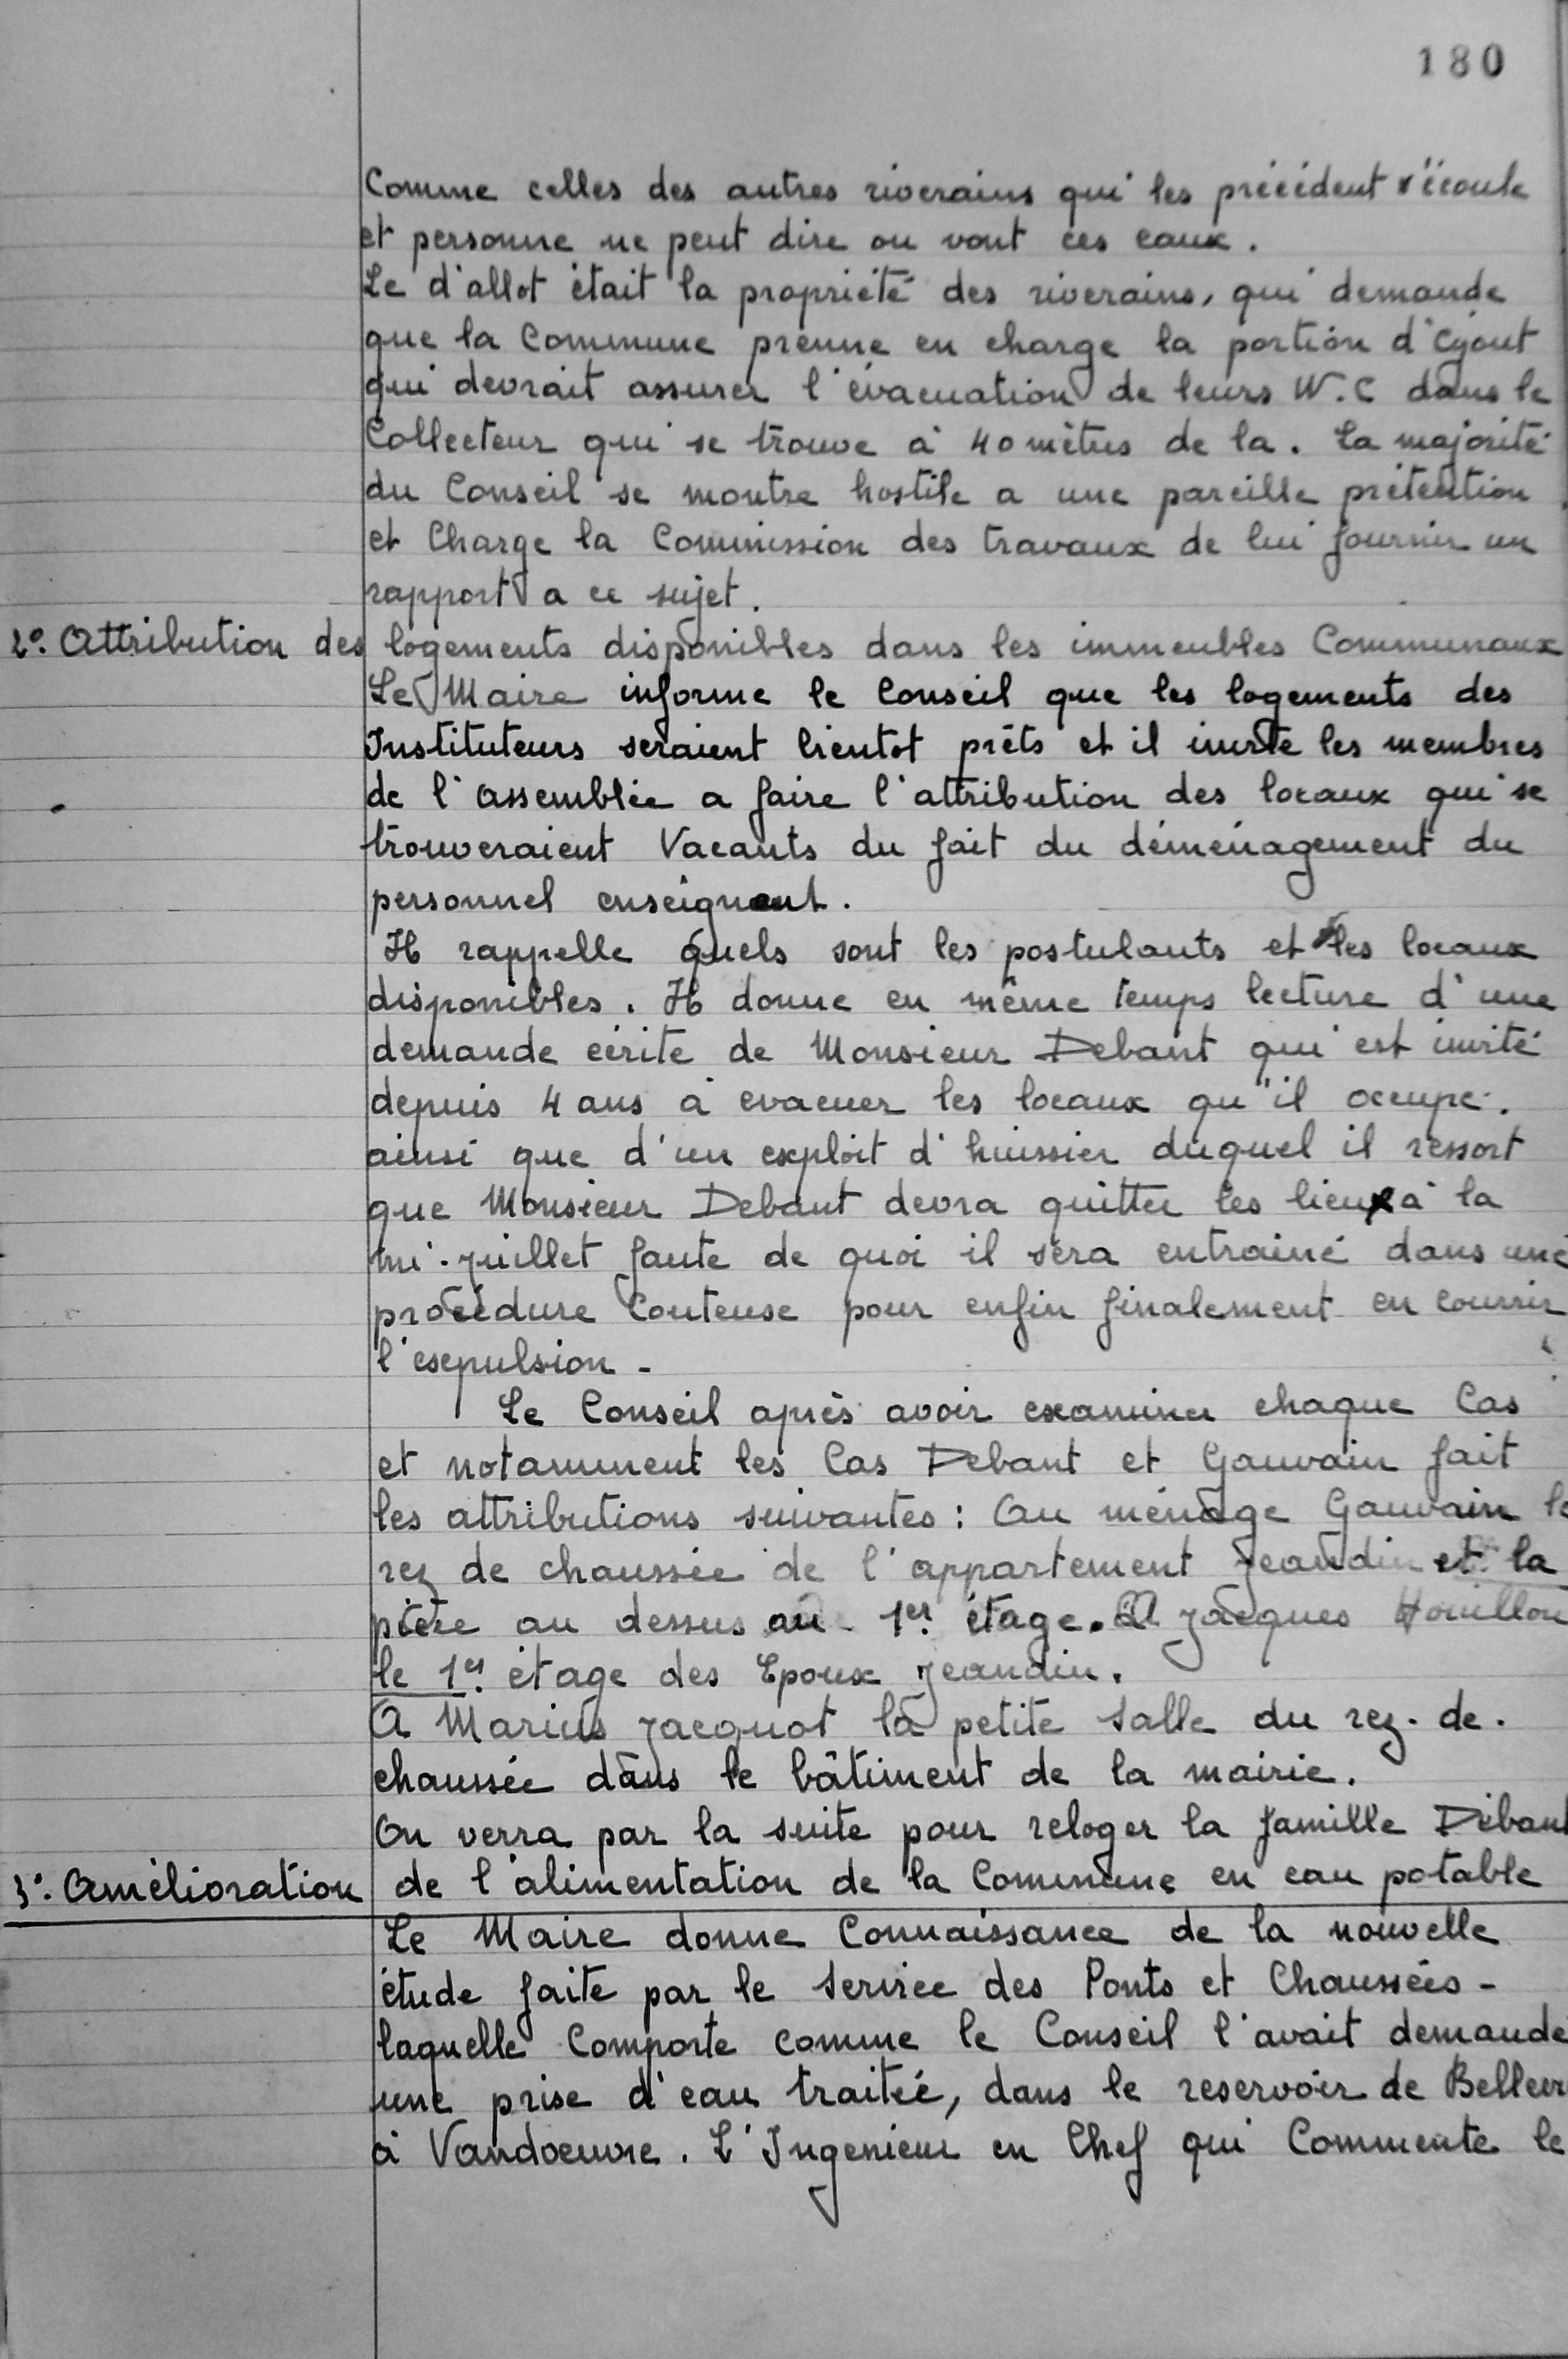 180
Comme celles des autres riverains qui les précédent s'écoule
et personne ne peut dire ou vont ces eaux.
Le d'allot était la propriété des riverains, qui demande
que la Commune prenne en charge la portion d'égout
qui devrait assurer l'évacuation de leurs W.C dans le
Collecteur qui se trouve à 40 mètres de la. La majorité
du Conseil se montre hostile a une pareille prétention
et Charge la Commission des travaux de lui fournir un
rapport a ce sujet.
2°. Attribution des logements disponibles dans les immeubles Communaux
Le Maire informe le Conseil que les logements des
Instituteurs seraient bientot prêts et il invite les membres
de l'assemblée a faire l'attribution des locaux qui se
trouveraient Vacants du fait du déménagement du
personnel enseignant.
Il rappelle quels sont les postulants et les locaux
disponibles. Il donne en même temps lecture d'une
demande écrite de Monsieur Debant qui est invité
depuis 4 ans à evacuer les locaux qu'il occupe.
ainsi que d'un exploit d'huissier duquel il ressort
que Monsieur Debant devra quitter les lieux à la
mi-juillet faute de quoi il sera entrainé dans une
procédure Couteuse pour enfin finalement en courrir
l'expulsion -
Le Conseil après avoir examiner chaque Cas
et notamment les Cas Debant et Gauvain fait
les attributions suivantes : Au ménage Gauvain le
rez de chaussée de l'appartement Jeandin et la
pièce au dessus au 1er. étage. A Jacques Houillon
le 1er. étage des Epoux Jeandin.
A Marius Jacquot la petite Salle du rez-de-
chaussée dans le bâtiment de la mairie.
On verra par la suite pour reloger la famille Débant
3°. Amélioration de l'alimentation de la Commune en eau potable
Le Maire donne Connaissance de la nouvelle
étude faite par le Service des Ponts et Chaussées -
laquelle Comporte comme le Conseil l'avait demandé
une prise d'eau traitée, dans le reservoir de
à Vandoeuvre. L'Ingenieur en Chef qui Commente le